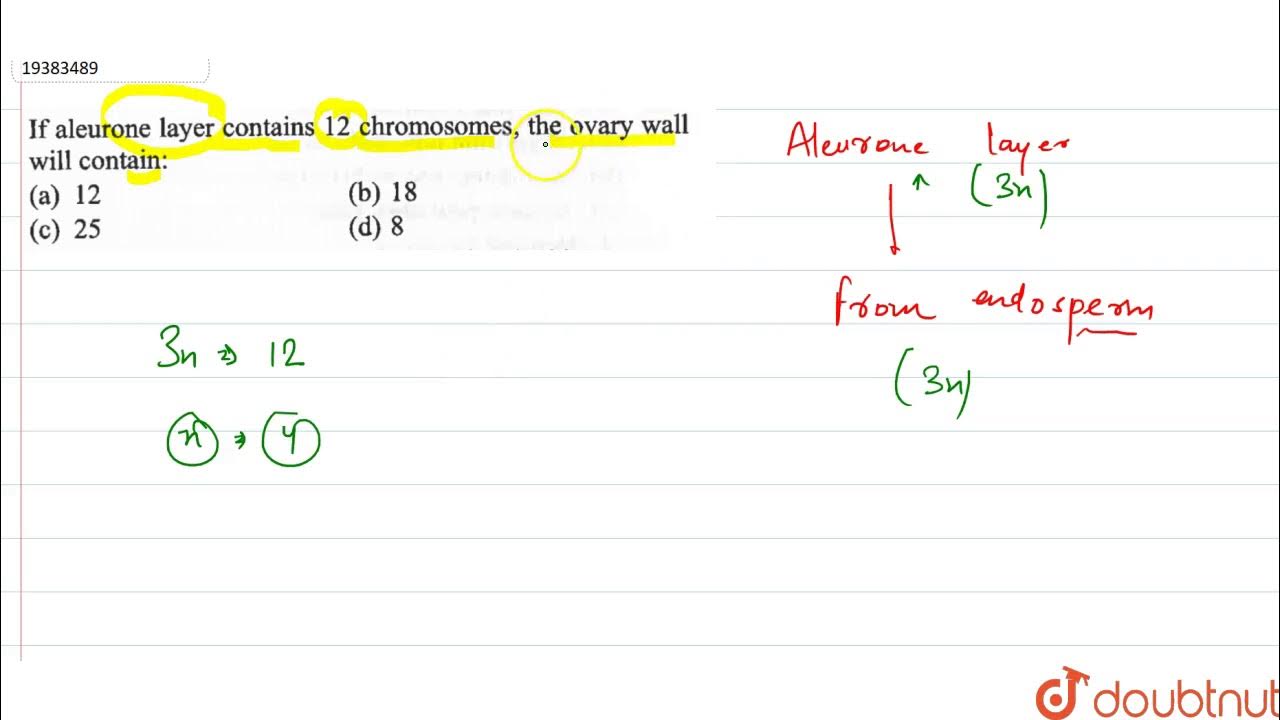 19383489
If aleurone layer contains 12 chromosomes, the ovary wall
will contain:
(a) 12 (b) 18
(c) 25 (d) 8
Aleurone layer
(3n)
from endosperm
(3n)
3n ⇒ 12
n ⇒ 4
doubtnut